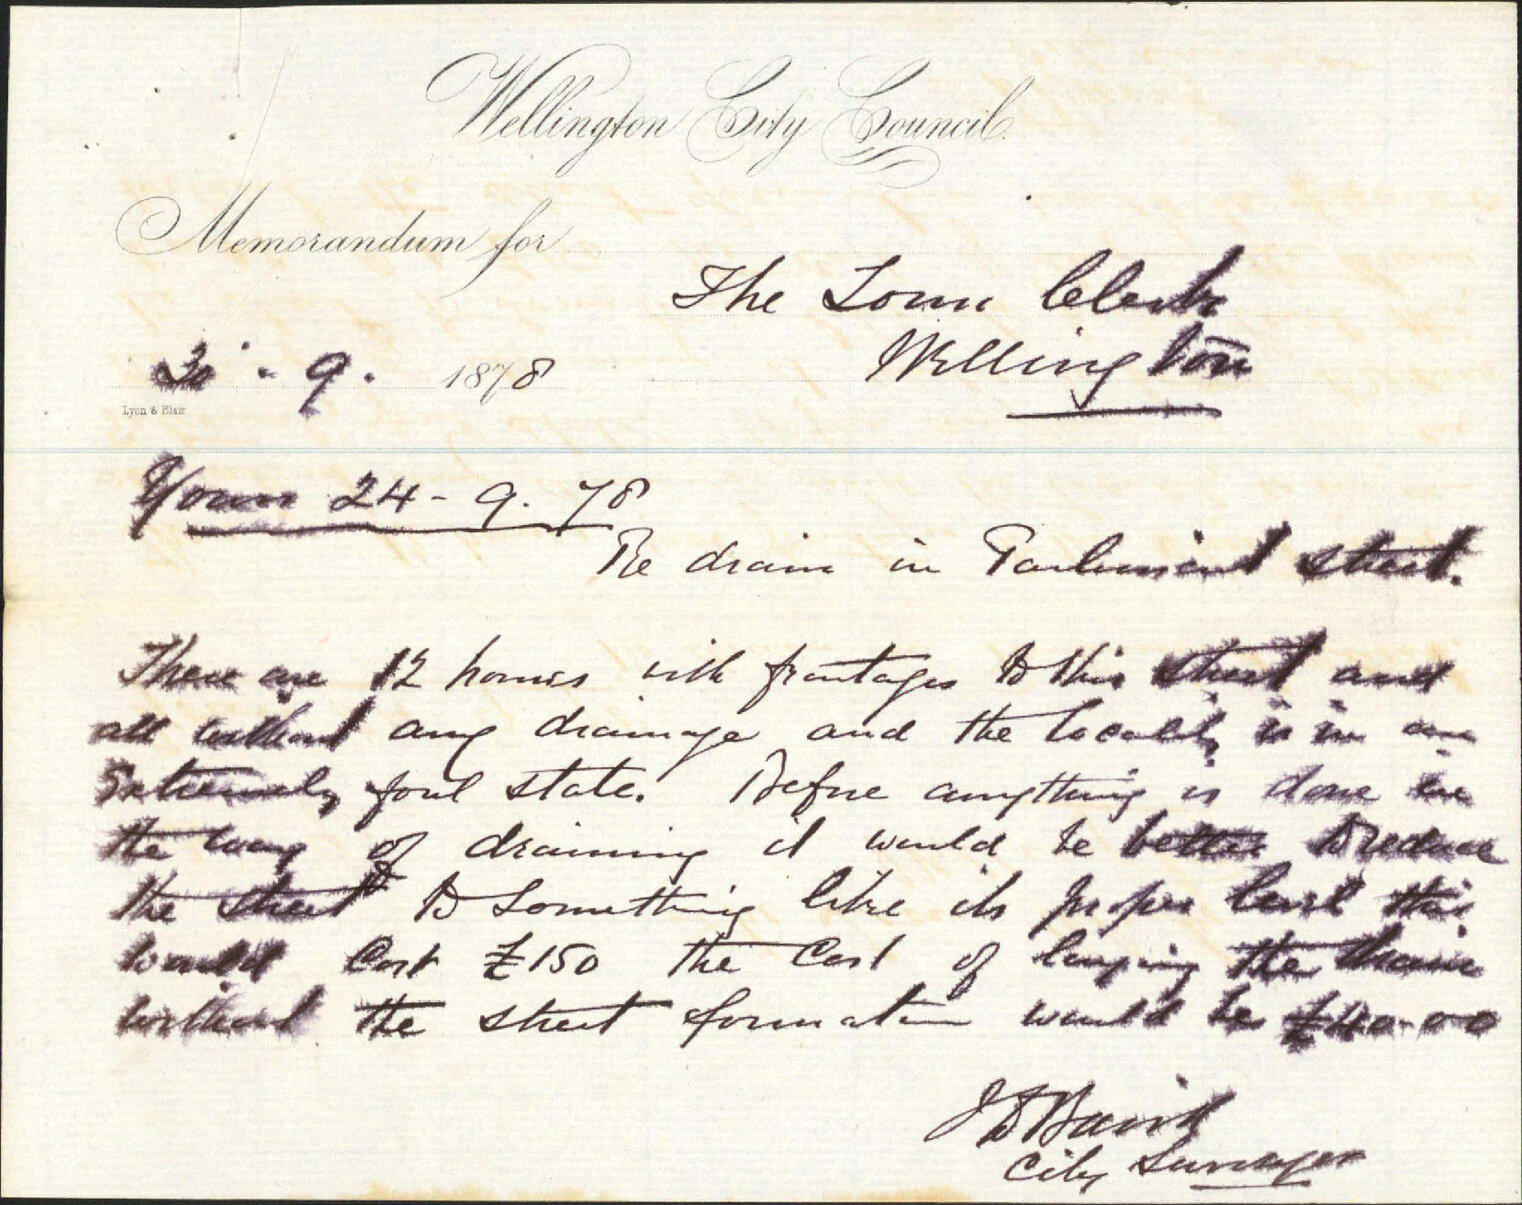 Wellington City Council
Memorandum for
The Town Clerk
Wellington
30 - 9. 1878
Lyon & Blair
Yours 24 - 9. 78
Re drain in Parliament street.
There are 12 houses with frontages to this street and
all without any drainage and the locality is in an
Extremely foul state. Before anything is done in
the way of draining it would be better to reduce
the street to something like its proper level this
would Cost £150 the Cost of laying the drain
without the street formation would be £40-00
J D Baird
City Surveyor